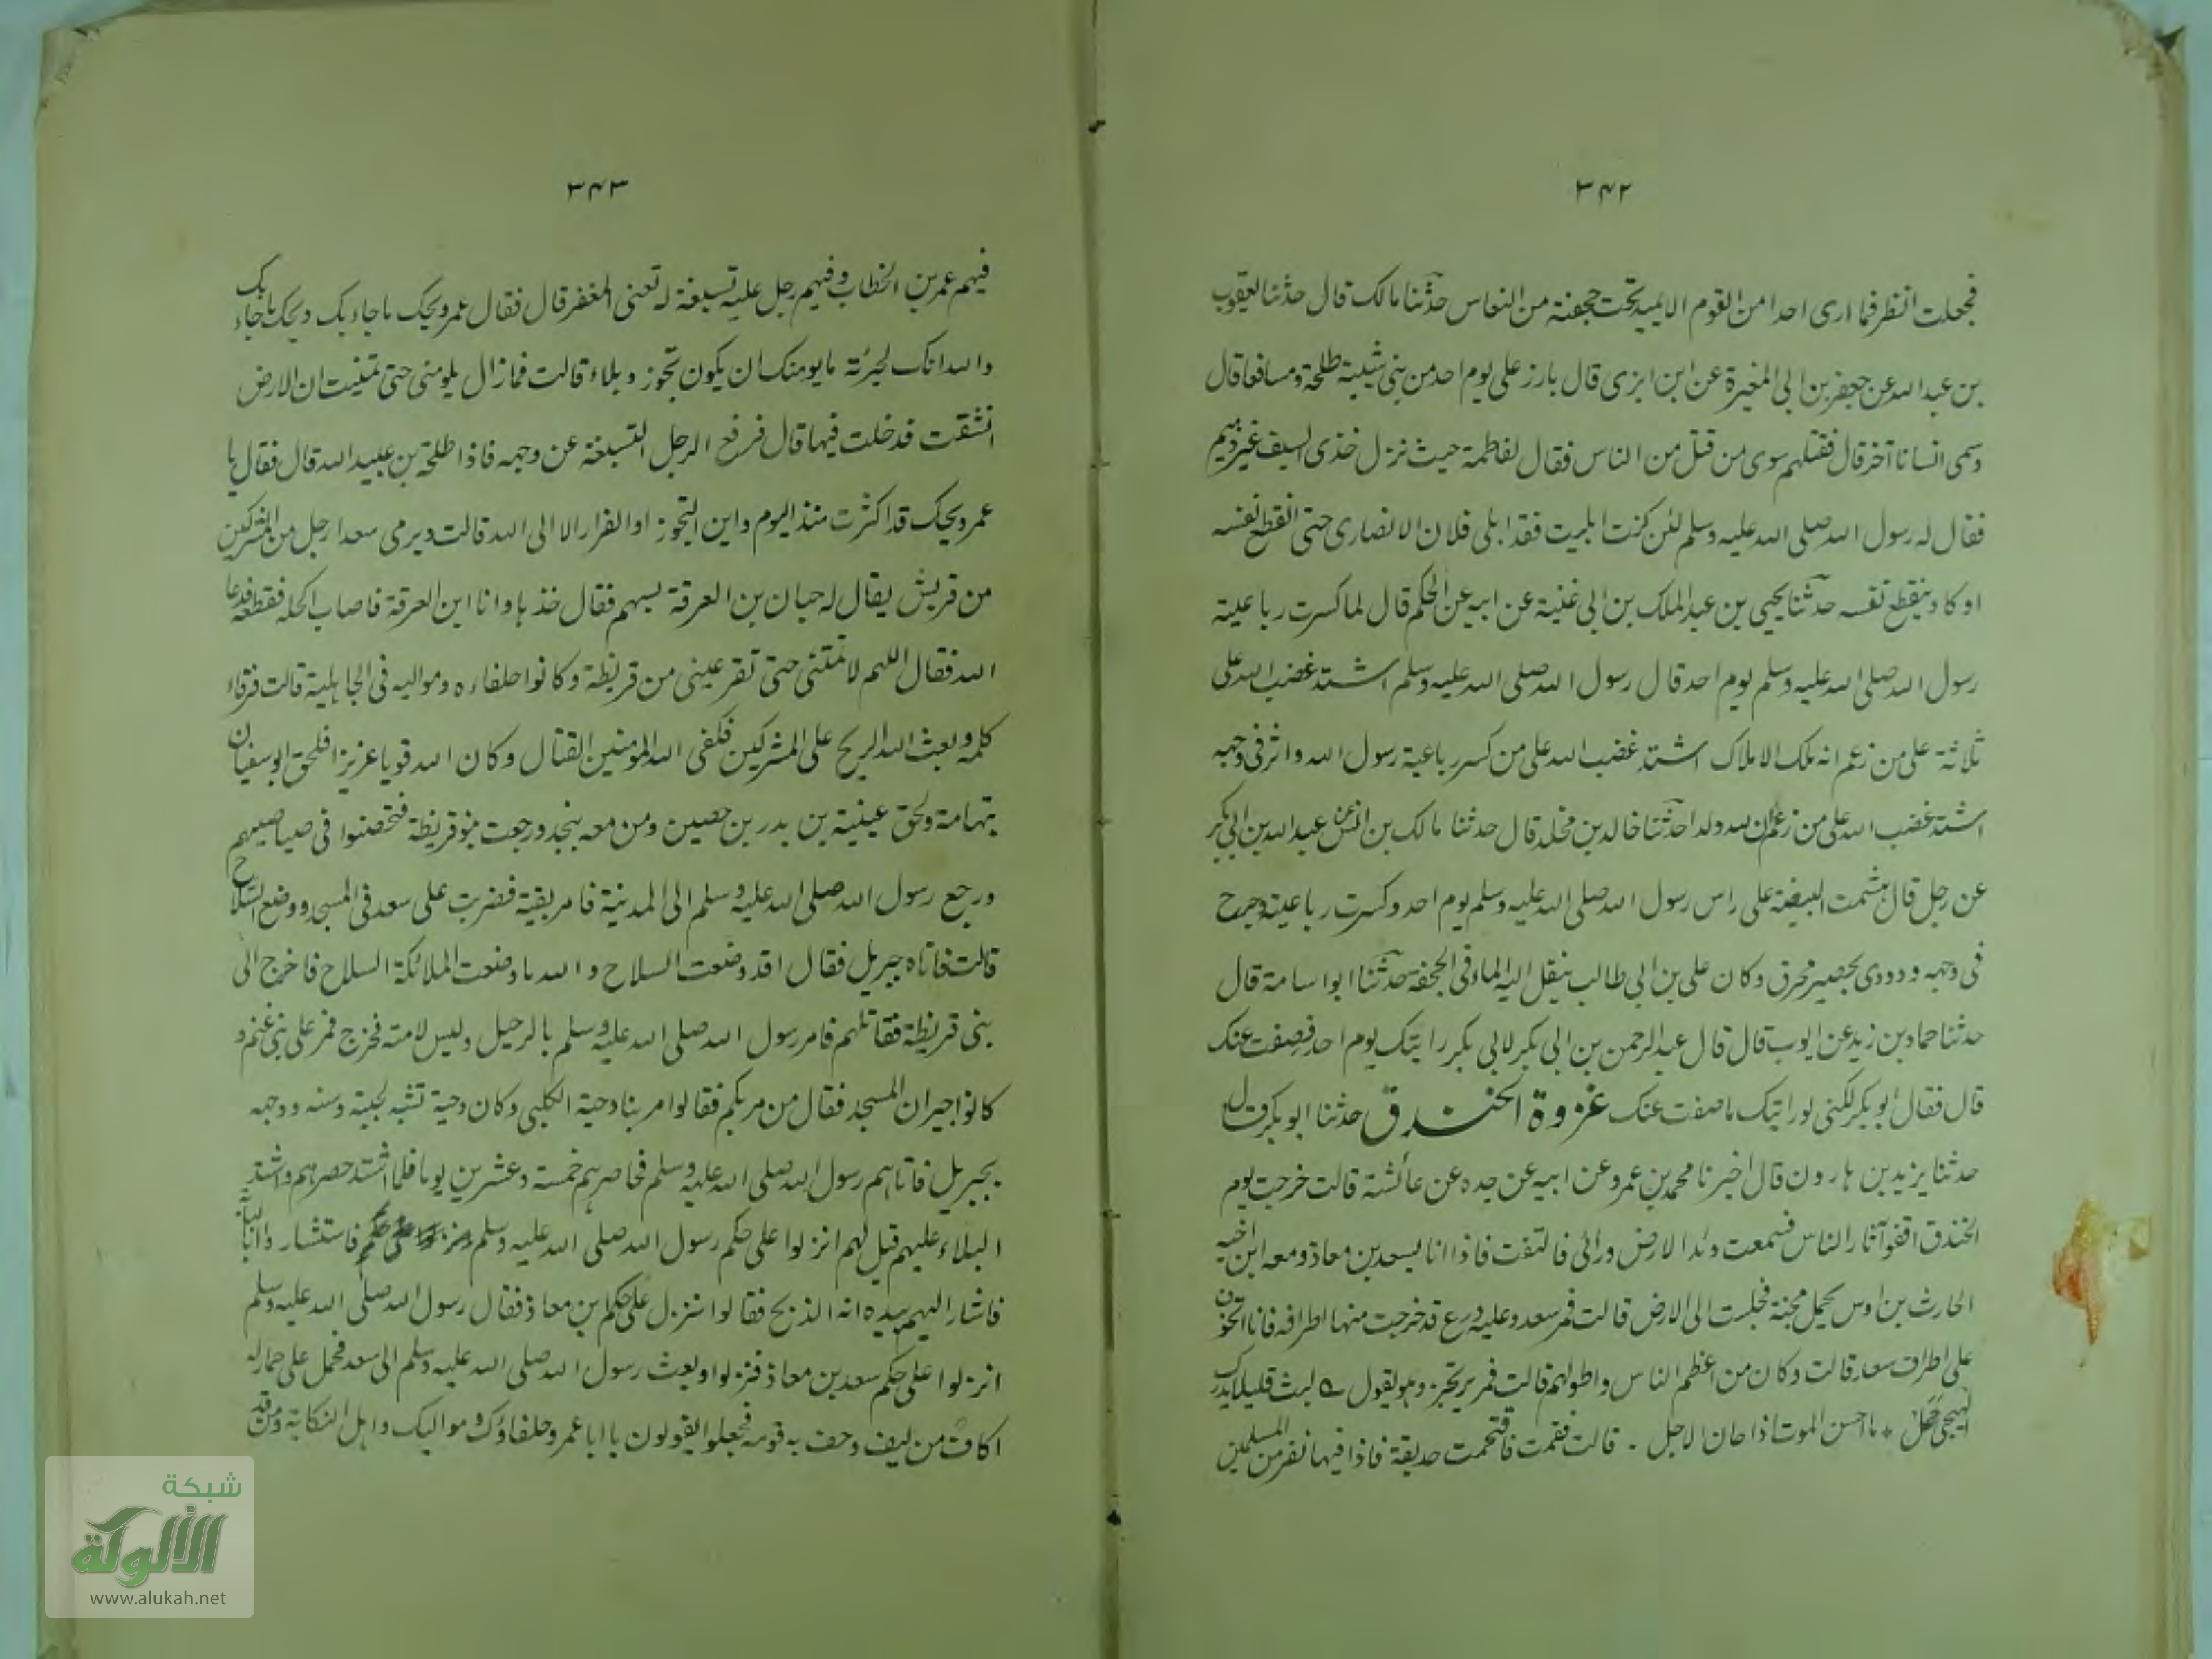 ٣٤٢
فجعلت انظر فما ارى احدا من القوم الا يميد تحت حجفته من النعاس حدثنا مالك قال حدثنا يعقوب
بن عبد الله عن جعفر بن ابى المغيرة عن ابن ابزى قال بارز على يوم احد من بنى شيبة طلحة ومسافعا قال
وسمى انسانا آخر قال فقتلهم سوى من قتل من الناس فقال لفاطمة حيث نزل خذى السيف غير ذميم
فقال له رسول الله صلى الله عليه وسلم لئن كنت ابليت فقد ابلى فلان الانصارى حتى انقطع نفسه
او كاد ينقطع نفسه حدثنا يحيى بن عبد الملك بن ابى غنية عن ابيه عن الحكم قال لما كسرت رباعية
رسول الله صلى الله عليه وسلم يوم احد قال رسول الله صلى الله عليه وسلم اشتد غضب الله على
ثلاثة على من زعم انه ملك الاملاك اشتد غضب الله على من كسر رباعية رسول الله واثر فى وجهه
اشتد غضب الله على من زعم ان لله ولدا حدثنا خالد بن مخلد قال حدثنا مالك بن انس عن عبد الله بن ابى بكر
عن رجل قال هشمت البيضة على راس رسول الله صلى الله عليه وسلم يوم احد وكسرت رباعيته وجرح
فى وجهه ودووى بحصير محرق وكان على بن ابى طالب ينقل اليه الماء فى الحجفة حدثنا ابو اسامة قال
حدثنا حماد بن زيد عن ايوب قال قال عبد الرحمن بن ابى بكر لابى بكر رايتك يوم احد فصفت عنك
قال فقال ابو بكر لكنى لو رايتك ما صفت عنك غزوة الخندق حدثنا ابو بكر قال
حدثنا يزيد بن هارون قال اخبرنا محمد بن عمرو عن ابيه عن جده عن عائشة قالت خرجت يوم
الخندق اقفو آثار الناس فسمعت وئد الارض ورائى فالتفت فاذا انا بسعد بن معاذ ومعه ابن اخيه
الحارث بن اوس يحمل مجنة فجلست الى الارض قالت فمر سعد وعليه درع قد خرجت منها اطرافه فانا اتخوف
على اطراف سعد قالت وكان من اعظم الناس واطولهم قالت فمر يرتجز وهو يقول لبث قليلا يدرك
الهيجى حمل * ما احسن الموت اذا حان الاجل . قالت فقمت فاقتحمت حديقة فاذا فيها نفر من المسلمين
٣٤٣
فيهم عمر بن الخطاب وفيهم رجل عليه تسبغة له تعنى المغفر قال فقال عمر ويحك ما جاء بك ويحك ما جاء بك
والله انك لجرئة ما يومنك ان يكون تحوز وبلاء قالت فما زال يلومنى حتى تمنيت ان الارض
انشقت فدخلت فيها قال فرفع الرجل التسبغة عن وجهه فاذا طلحة بن عبيد الله قال فقال يا
عمر ويحك قد اكثرت منذ اليوم واين التحوز او الفرار الا الى الله قالت ويرمى سعدا رجل من المشركين
من قريش يقال له حبان بن العرقة بسهم فقال خذها وانا ابن العرقة فاصاب اكحله فقطعه فدعا
الله فقال اللهم لا تمتنى حتى تقر عينى من قريظة وكانوا حلفاءه ومواليه فى الجاهلية قالت فرقاء
كلمه وبعث الله الريح على المشركين فكفى الله المومنين القتال وكان الله قويا عزيزا فلحق ابو سفيان
بتهامة ولحق عيينة بن بدر بن حصين ومن معه بنجد ورجعت بنو قريظة فتحصنوا فى صياصيهم
ورجع رسول الله صلى الله عليه وسلم الى المدينة فامر بقبة فضربت على سعد فى المسجد ووضع السلاح
قالت فاتاه جبريل فقال اقد وضعت السلاح والله ما وضعت الملائكة السلاح فاخرج الى
بنى قريظة فقاتلهم فامر رسول الله صلى الله عليه وسلم بالرحيل ولبس لامته فخرج فمر على بنى غنم و
كانوا جيران المسجد فقال من مر بكم فقالوا مر بنا دحية الكلبى وكان دحية تشبه لحيته وسنه ووجهه
بجبريل فاتاهم رسول الله صلى الله عليه وسلم فحاصرهم خمسة وعشرين يوما فلما اشتد حصرهم واشتد
البلاء عليهم قيل لهم انزلوا على حكم رسول الله صلى الله عليه وسلم فاستشاروا ابا لبابة
فاشار اليهم بيده انه الذبح فقالوا ننزل على حكم ابن معاذ فقال رسول الله صلى الله عليه وسلم
انزلوا على حكم سعد بن معاذ فنزلوا وبعث رسول الله صلى الله عليه وسلم الى سعد فحمل على حمار له
اكاف من ليف وحف به قومه فجعلوا يقولون يا ابا عمرو حلفاؤك ومواليك واهل النكاية ومن قد
شبكة
الألوكة
www.alukah.net